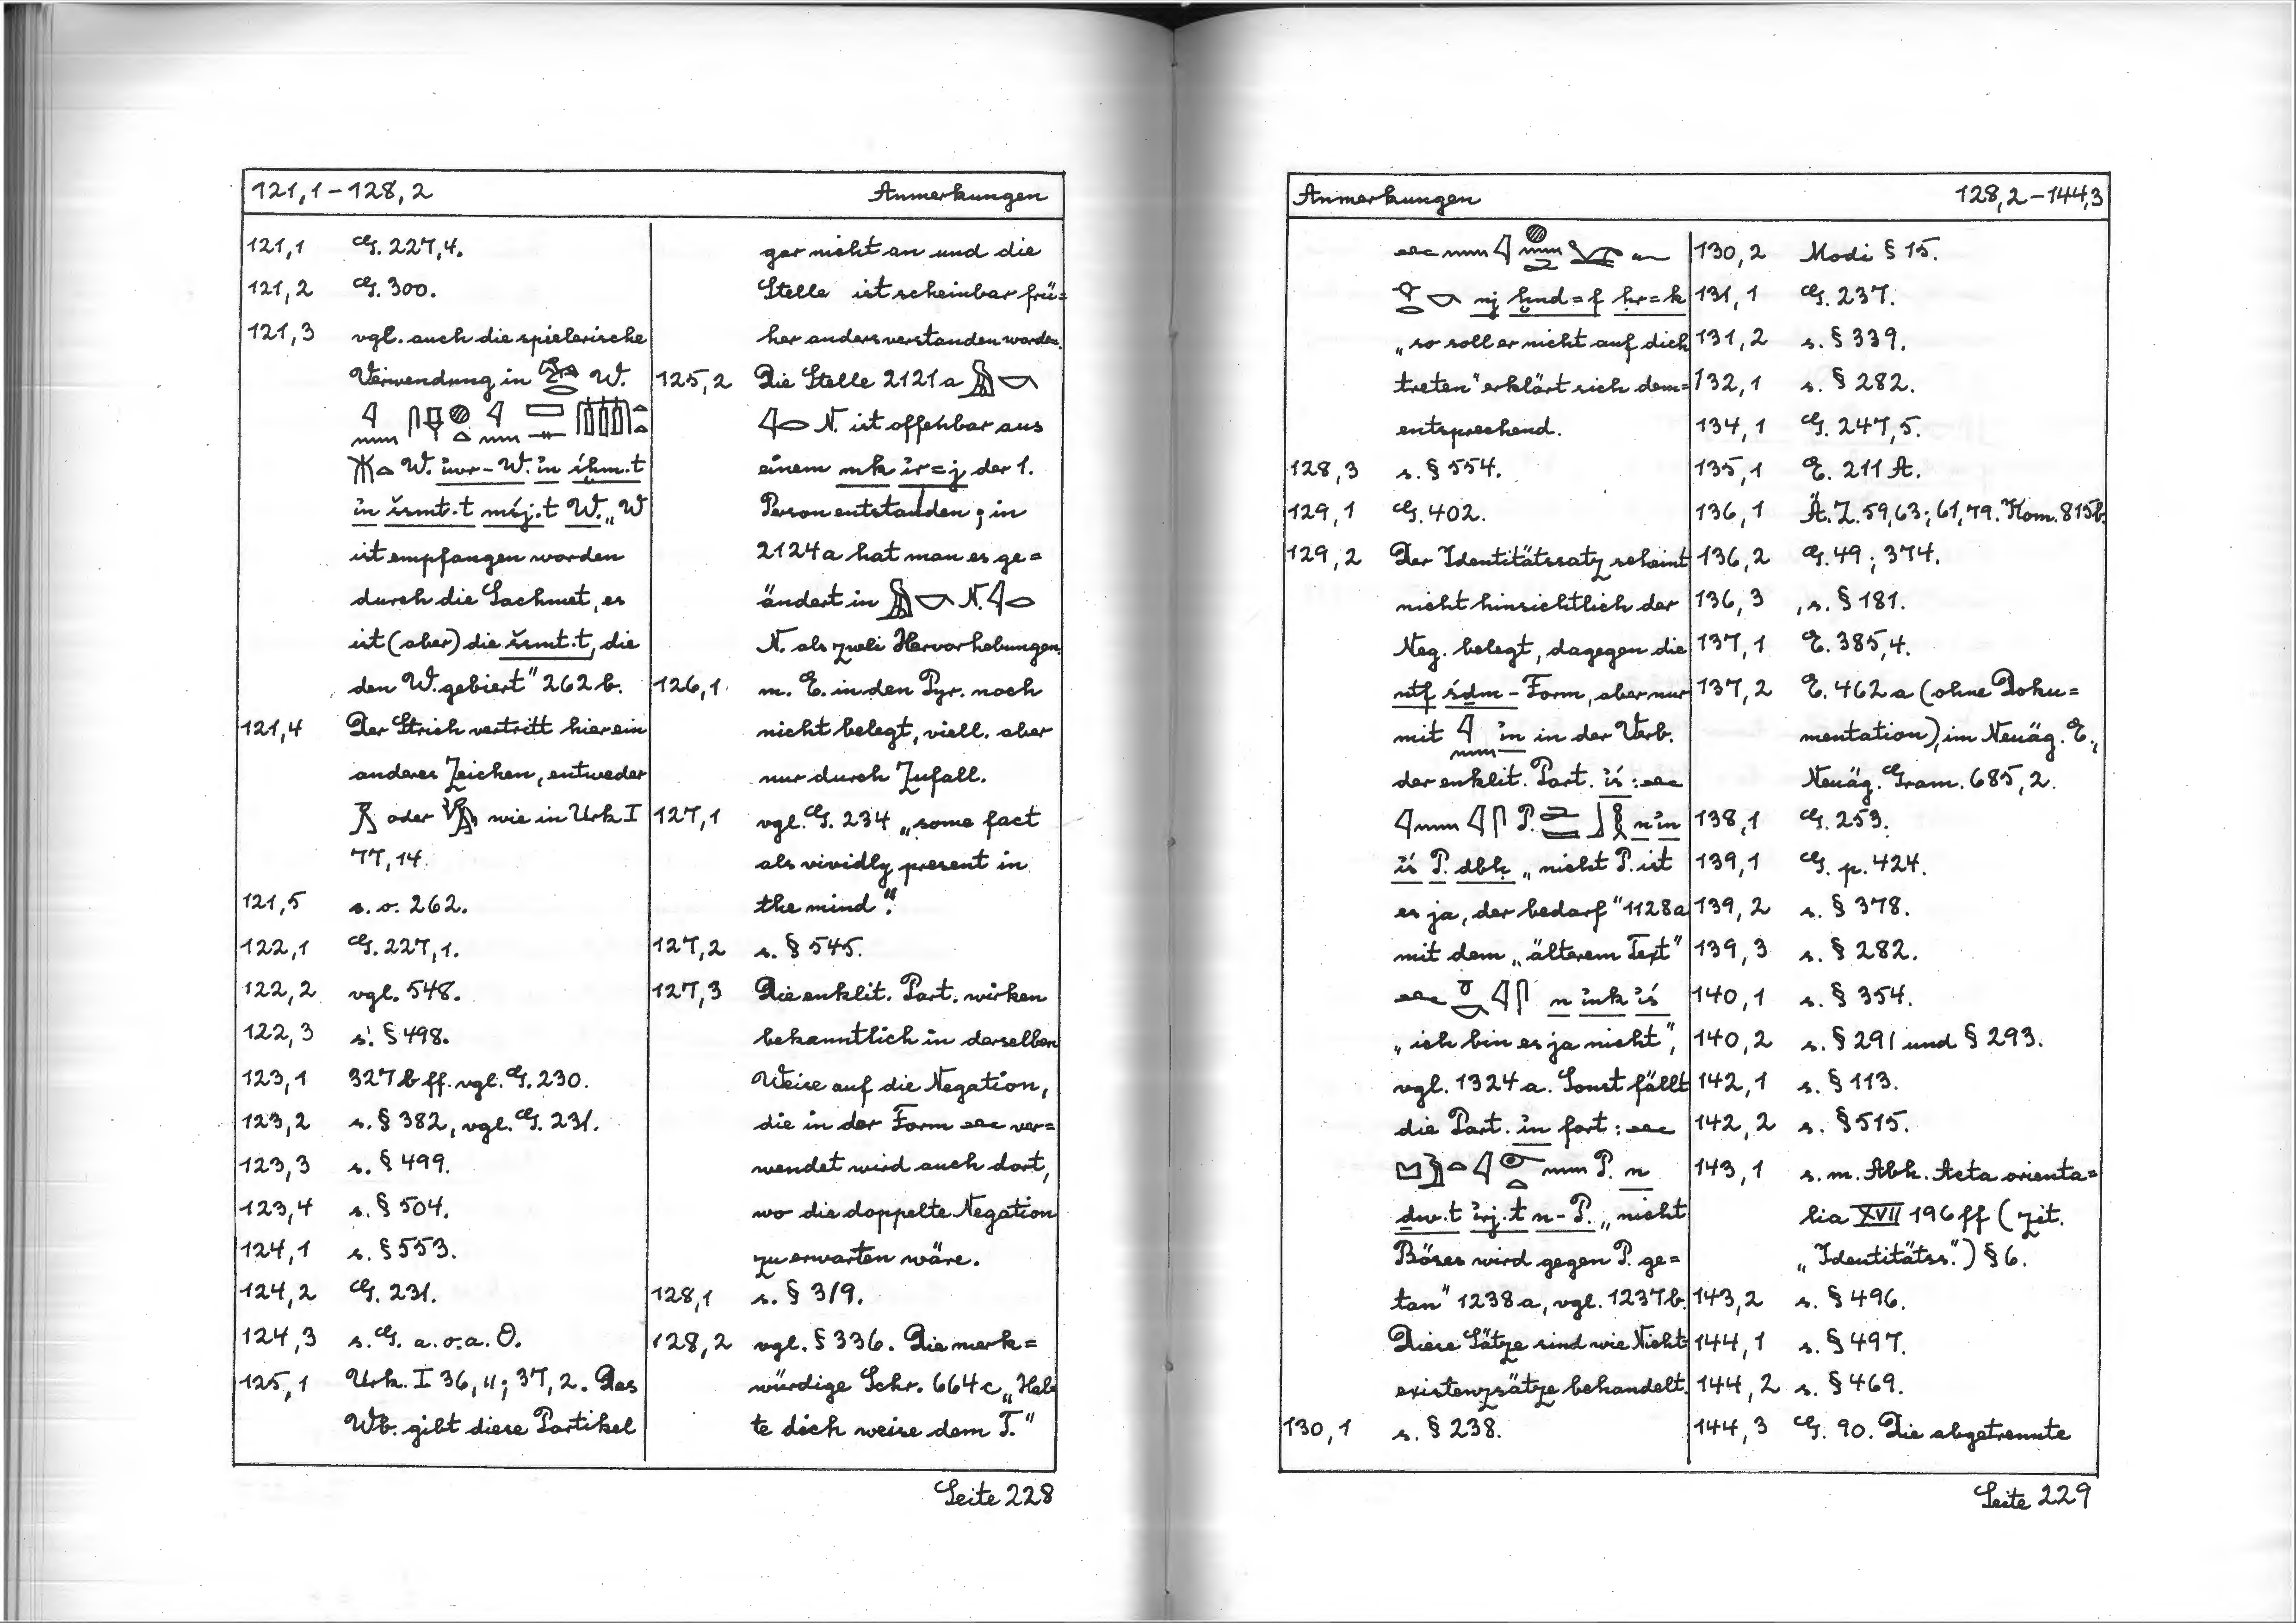 121,1 – 128,2 Anmerkungen
121,1 G. 227,4.
121,2 G. 300.
121,3 vgl. auch die spielerische
Verwendung in W.
W. iwr-W. in śḫm.t
in šsmt.t mśj.t W. „W
ist empfangen worden
durch die Sachmet, es
ist (aber) die šsmt.t, die
den W. gebiert" 262 b.
121,4 Der Strich vertritt hier ein
anderes Zeichen, entweder
oder wie in Urk I
77,14.
121,5 s. o. 262.
122,1 G. 227,1.
122,2 vgl. 548.
122,3 s. § 498.
123,1 327 b ff. vgl. G. 230.
123,2 s. § 382, vgl. G. 231.
123,3 s. § 499.
123,4 s. § 504.
124,1 s. § 553.
124,2 G. 231.
124,3 s. G. a. o. a. O.
125,1 Urk. I 36,11; 37,2. Das
Wb. gibt diese Partikel
gar nicht an und die
Stelle ist scheinbar frü=
her anders verstanden worden.
125,2 Die Stelle 2121 a
N. ist offenbar aus
einem mk ir=j der 1.
Person entstanden; in
2124 a hat man es ge=
ändert in N.
N. als zwei Hervorhebungen.
126,1 m. E. in den Pyr. noch
nicht belegt, viell. aber
nur durch Zufall.
127,1 vgl. G. 234 „some fact
als vividly present in
the mind".
127,2 s. § 545.
127,3 Die enklit. Part. wirken
bekanntlich in derselben
Weise auf die Negation,
die in der Form ver=
wendet wird auch dort,
wo die doppelte Negation
zu erwarten wäre.
128,1 s. § 319.
128,2 vgl. § 336. Die merk=
würdige Schr. 664 c „Hal
te dich weise dem T."
Seite 228
Anmerkungen 128,2 – 1444,3
nj ḫnd=f ḥr=k
„so soll er nicht auf dich
treten" erklärt sich dem=
entsprechend.
128,3 s. § 554.
129,1 G. 402.
129,2 Der Identitätssatz scheint
nicht hinsichtlich der
Neg. belegt, dagegen die
ntf śdm – Form, aber nur
mit in in der Verb.
der enklit. Part. iś:
P. n in
iś P. dbḥ „nicht P. ist
es ja, der bedarf" 1128 a
mit dem „älterem Text"
n ink iś
„ich bin es ja nicht",
vgl. 1324 a. Sonst fällt
die Part. in fort:
P. n
dw.t irj.t n-P. „nicht
Böses wird gegen P. ge=
tan" 1238 a, vgl. 1237 b.
Diese Sätze sind wie Nicht
existenzsätze behandelt.
130,1 s. § 238.
130,2 Modi § 15.
131,1 G. 237.
131,2 s. § 339.
132,1 s. § 282.
134,1 G. 247,5.
135,1 E. 211 A.
136,1 Ä.Z. 59,63; 61,79. Kom. 815 b.
136,2 G. 49; 374.
136,3 s. § 181.
137,1 E. 385,4.
137,2 E. 462 a (ohne Doku=
mentation), im Neuäg. E.,
Neuäg. Gram. 685,2.
138,1 G. 253.
139,1 G. p. 424.
139,2 s. § 378.
139,3 s. § 282.
140,1 s. § 354.
140,2 s. § 291 und § 293.
142,1 s. § 113.
142,2 s. § 515.
143,1 s. m. Abh. Acta orienta=
lia XVII 196 ff (zit.
„Identitätss.") § 6.
143,2 s. § 496.
144,1 s. § 497.
144,2 s. § 469.
144,3 G. 90. Die abgetrennte
Seite 229